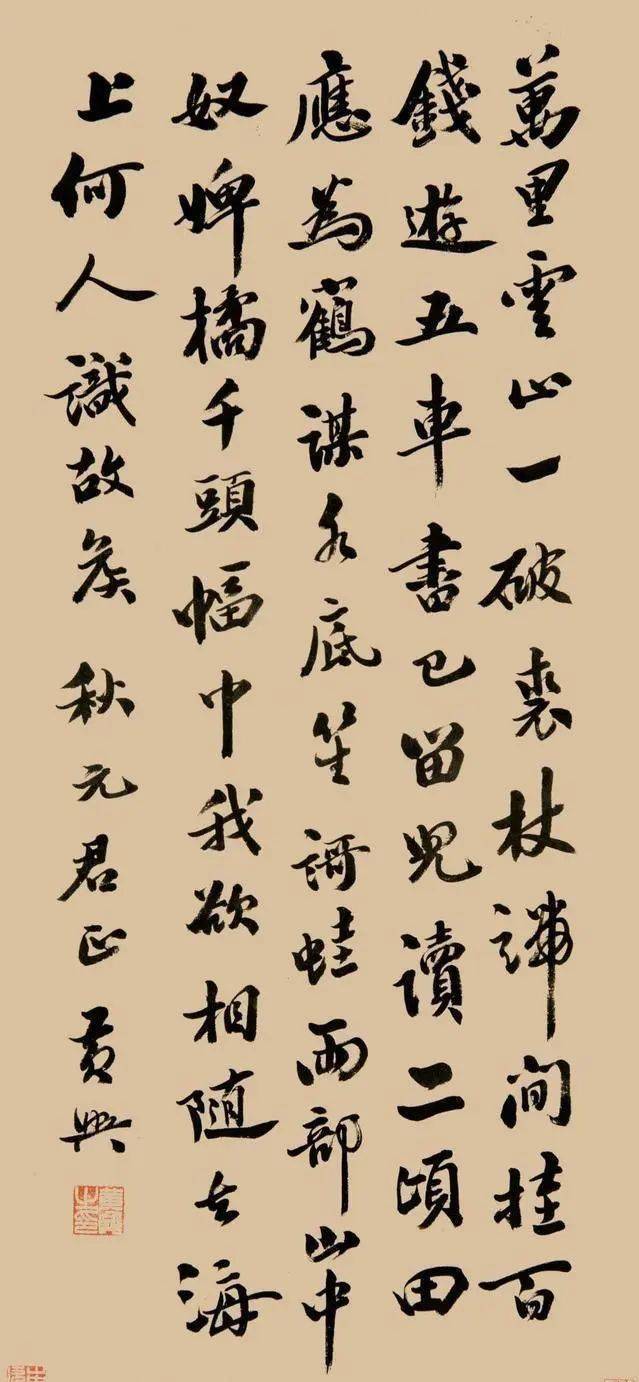 萬里雲山一破裘杖端間挂百
錢遊五車書已留兒讀二頃田
應為鶴謀水底笙謌蛙兩部山中
奴婢橘千頭幅巾我欲相隨去海
上何人識故矦 秋元君正 黄興